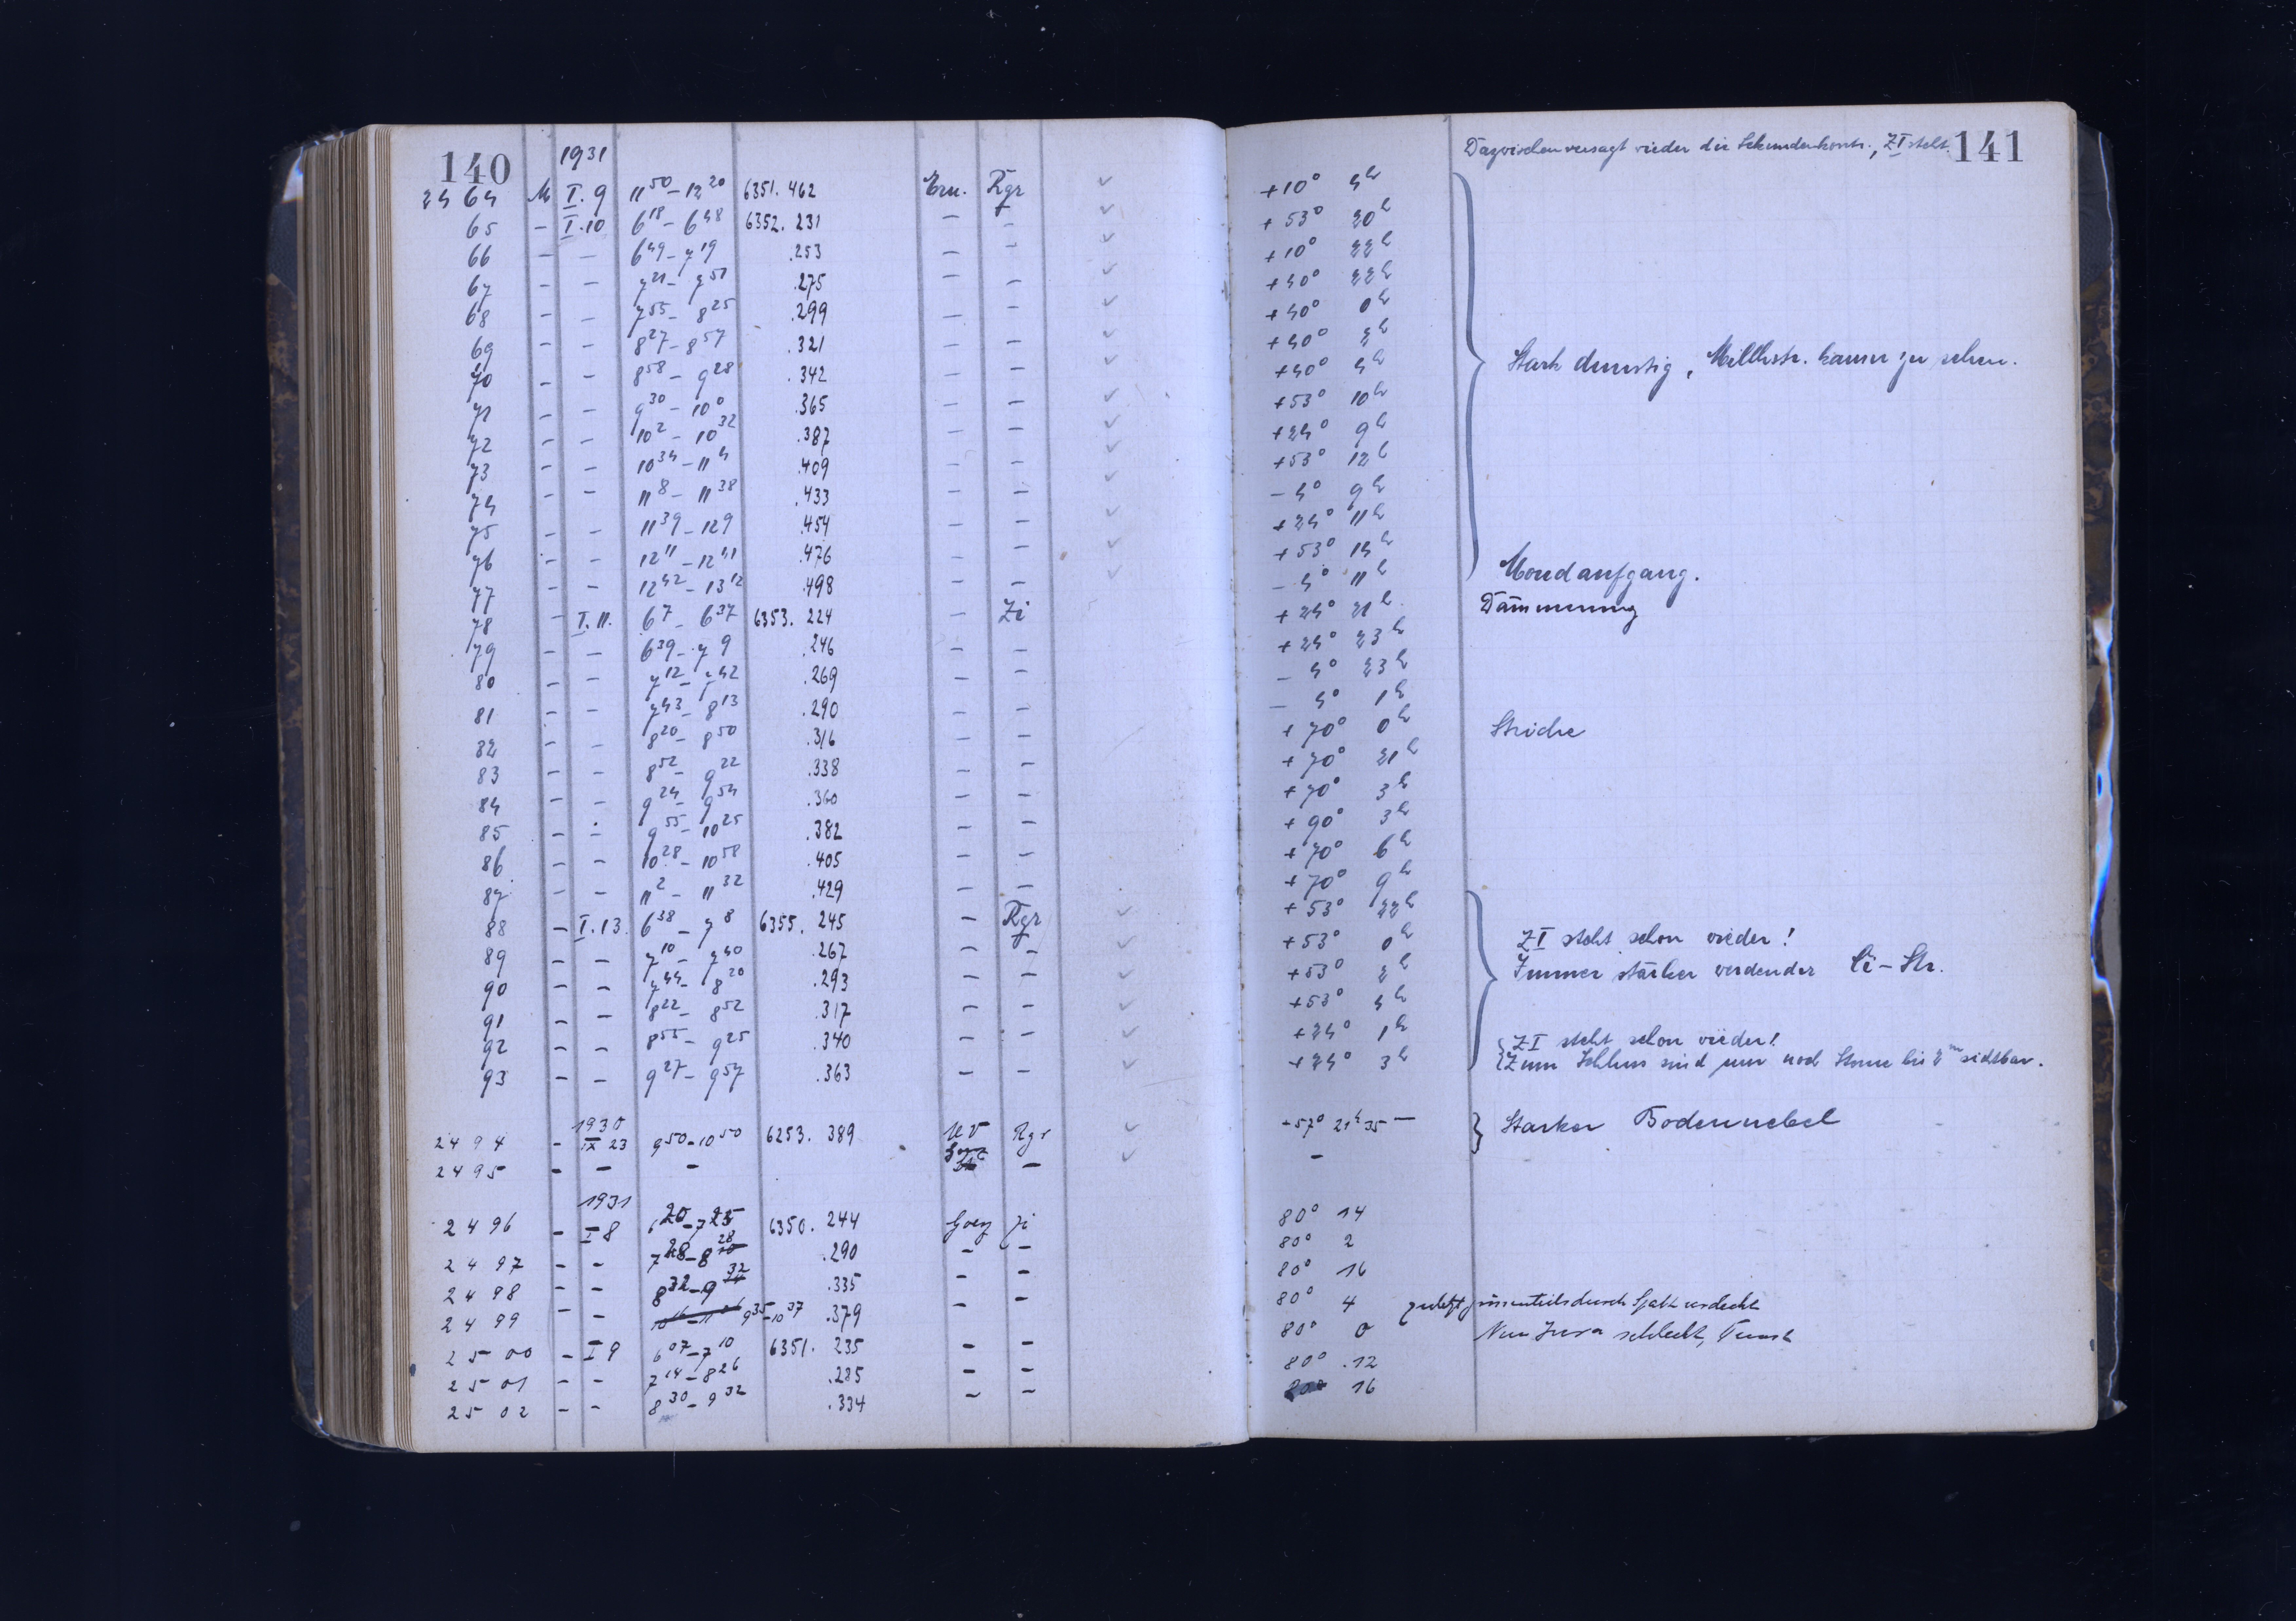 140 1931
2464 M I.9 11 50 – 12 20 6351.462 Ern. Rgr
65 – I.10 6 18 – 6 48 6352.231 – –
66 – – 6 49 – 7 19 .253 – –
67 – – 7 21 – 7 51 .275 – –
68 – – 7 55 – 8 25 .299 – –
69 – – 8 27 – 8 57 .321 – –
70 – – 8 58 – 9 28 .342 – –
71 – – 9 30 – 10 0 .365 – –
72 – – 10 2 – 10 32 .387 – –
73 – – 10 34 – 11 4 .409 – –
74 – – 11 8 – 11 38 .433 – –
75 – – 11 39 – 12 9 .454 – –
76 – – 12 11 – 12 41 .476 – –
77 – – 12 42 – 13 12 .498 – –
78 – I.11. 6 7 – 6 37 6353.224 – Zi
79 – – 6 39 – 7 9 .246 – –
80 – – 7 12 – 7 42 .269 – –
81 – – 7 43 – 8 13 .290 – –
82 – – 8 20 – 8 50 .316 – –
83 – – 8 52 – 9 22 .338 – –
84 – – 9 24 – 9 54 .360 – –
85 – – 9 55 – 10 25 .382 – –
86 – – 10 28 – 10 58 .405 – –
87 – – 11 2 – 11 32 .429 – –
88 – I.13. 6 38 – 7 8 6355.245 – Rgr
89 – – 7 10 – 7 40 .267 – –
90 – – 7 44 – 8 20 .293 – –
91 – – 8 22 – 8 52 .317 – –
92 – – 8 55 – 9 25 .340 – –
93 – – 9 27 – 9 57 .363 – –
1930
2494 – IX 23 9 50 – 10 50 6253.389 UV Rgr
2495 – – – –
1931
2496 – I 8 6 20 – 7 25 6350.244 Goez Zi
2497 – – 7 28 – 8 28 .290 – –
2498 – – 8 32 – 9 32 .335 – –
2499 – – 9 35 – 10 37 .379 – –
2500 – I 9 6 07 – 7 10 6351.235 – –
2501 – – 7 14 – 8 26 .285 – –
2502 – – 8 30 – 9 32 .334 – –
Dazwischen versagt wieder die Sekundenkontr., ZI steht. 141
+10° 4h
+53° 20h
+10° 22h
+40° 22h
+40° 0h
+40° 2h
+40° 4h Stark dunstig, Milchstr. kaum zu sehen.
+53° 10h
+24° 9h
+53° 12h
–4° 9h
+24° 11h
+53° 14h
–4° 11h Mondaufgang.
+24° 21h Dämmerung
+24° 23h
–4° 23h
–4° 1h
+70° 0h Striche
+70° 21h
+70° 3h
+90° 3h
+70° 6h
+70° 9h
+53° 22h
+53° 0h ZI steht schon wieder!
+53° 2h Immer stärker werdender Ci-Str.
+53° 4h
+24° 1h ZI steht schon wieder!
+24° 3h Zum Schluss sind nur noch Sterne bis 2m sichtbar.
+57° 21h 35 – Starker Bodennebel
–
80° 14
80° 2
80° 16
80° 4 zuletzt grössenteils durch Spalt verdeckt
80° 0 schlecht, Dunst
80° 12
16